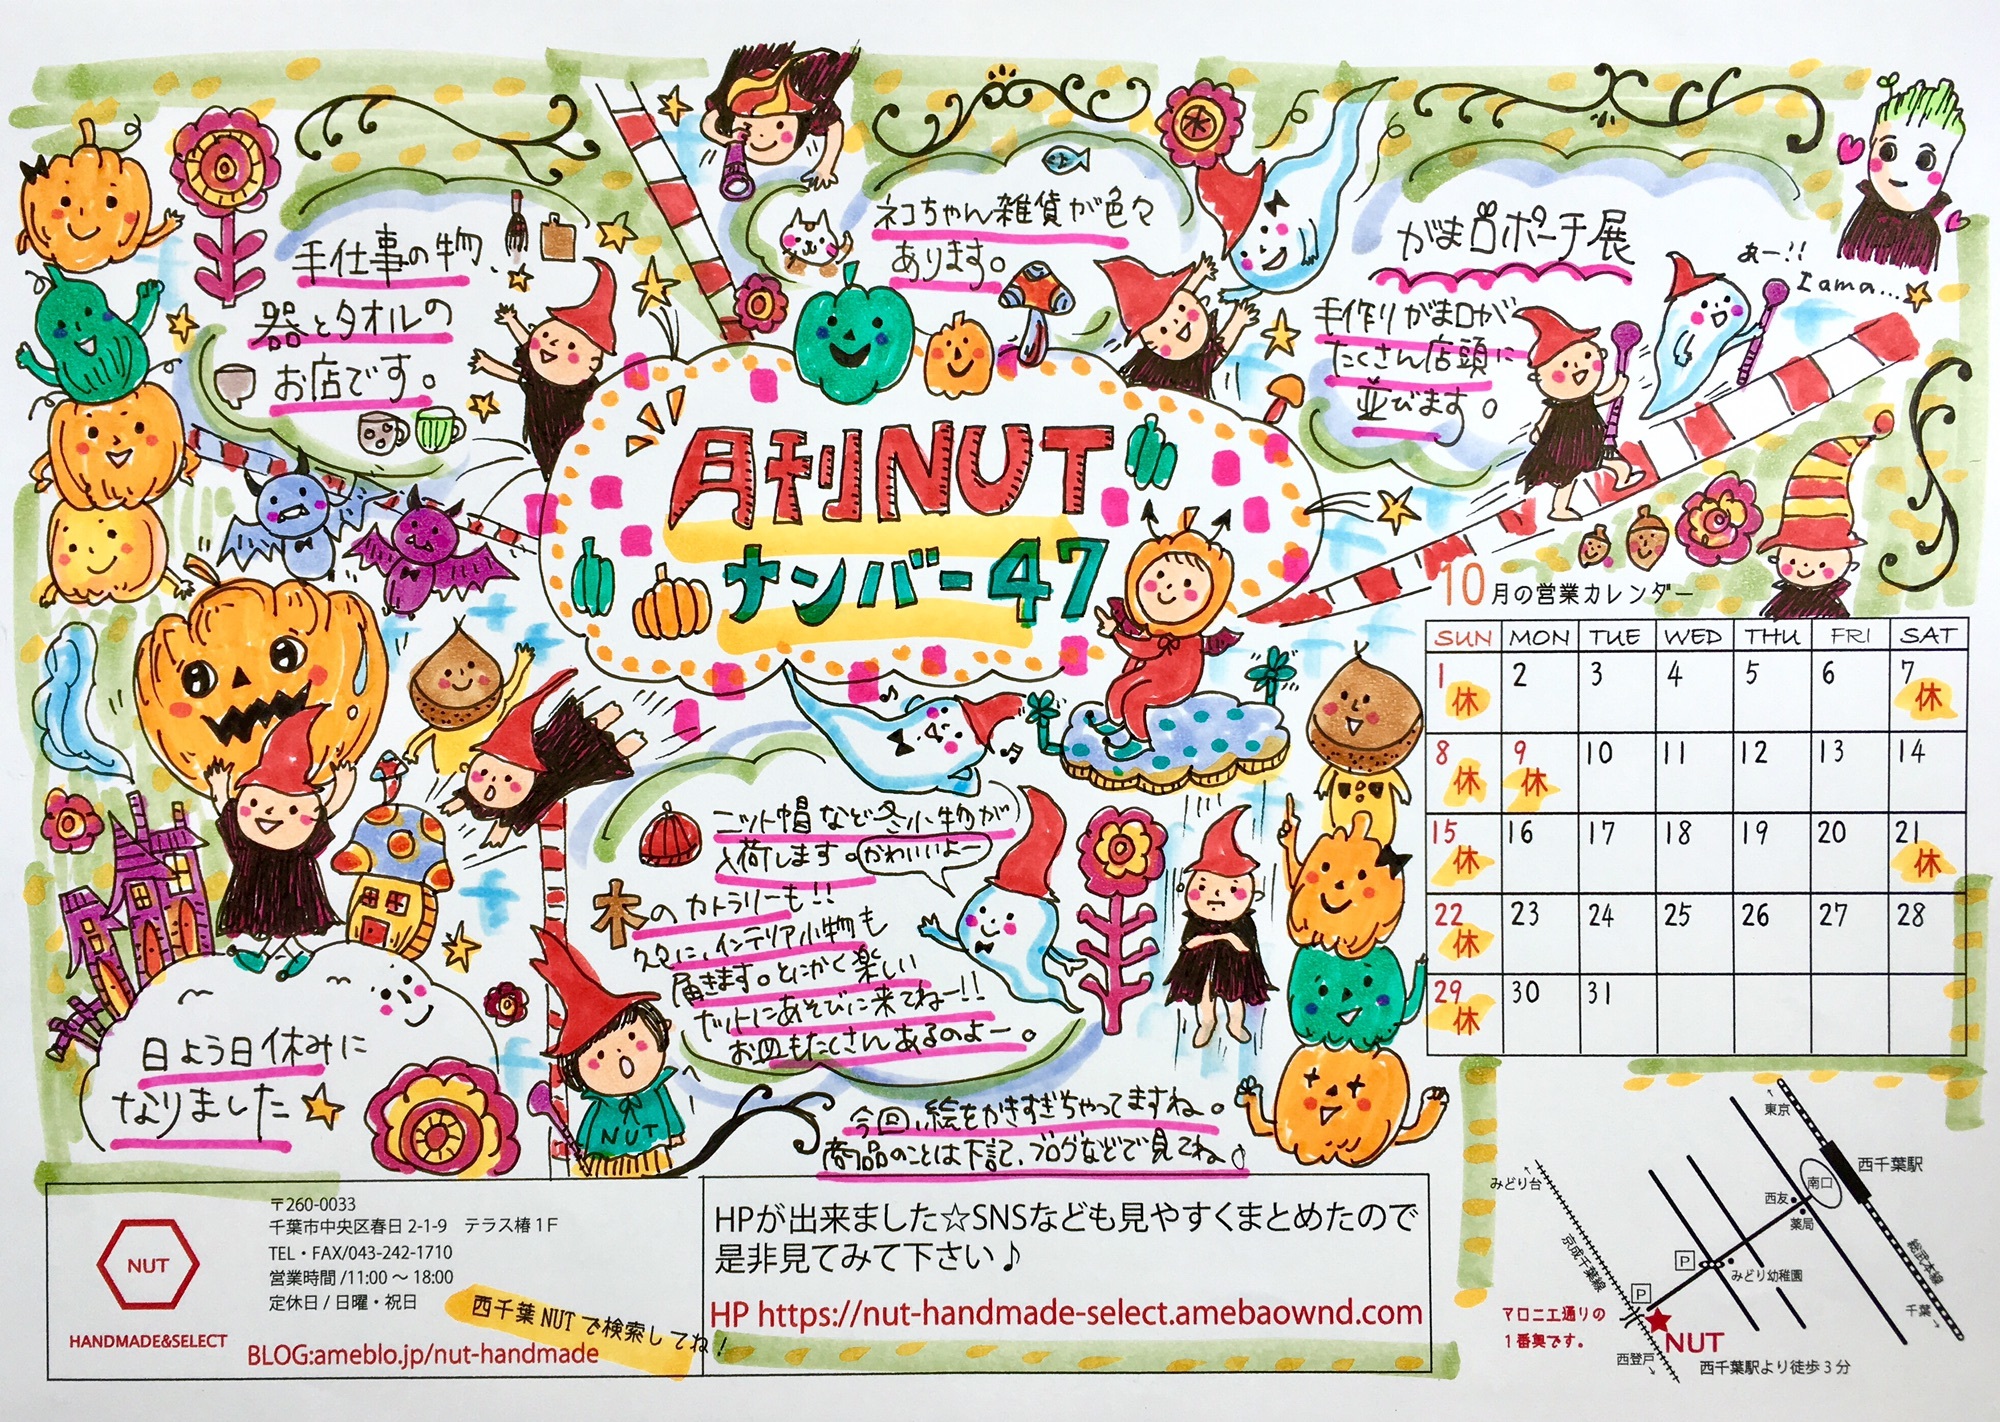 手仕事の物、
器とタオルの
お店です。
ネコちゃん雑貨が色々
あります。
がま口ポーチ展
手作りがま口が
たくさん店頭に
並びます。
あー!!
I am a...
月刊NUT
ナンバー47
ニット帽など冬小物が
入荷します。
かわいいよー
木のカトラリーも!!
更に、インテリア小物も
届きます。とにかく楽しい
ナットにあそびに来てねー!!
お皿もたくさんあるのよー。
日よう日休みに
なりました
NUT
今回、絵をかきすぎちゃってますね。
商品のことは下記、ブログなどで見てね。
10月の営業カレンダー
SUN MON TUE WED THU FRI SAT
1 2 3 4 5 6 7
休 休
8 9 10 11 12 13 14
休 休
15 16 17 18 19 20 21
休 休
22 23 24 25 26 27 28
休
29 30 31
休
NUT
HANDMADE&SELECT
〒260-0033
千葉市中央区春日 2-1-9 テラス椿 1F
TEL・FAX/043-242-1710
営業時間 /11:00 ～ 18:00
定休日 / 日曜・祝日
BLOG:ameblo.jp/nut-handmade
西千葉 NUT で検索してね!
HPが出来ました☆SNSなども見やすくまとめたので
是非見てみて下さい♪
HP https://nut-handmade-select.amebaownd.com
東京
西千葉駅
南口
みどり台
西友
薬局
京成千葉線
総武本線
P
みどり幼稚園
P
千葉
マロニエ通りの
1番奥です。
NUT
西登戸
西千葉駅より徒歩 3 分